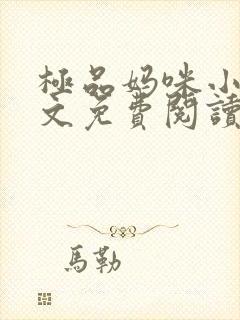 極品妈咪小
文免費閱讀
馬勒